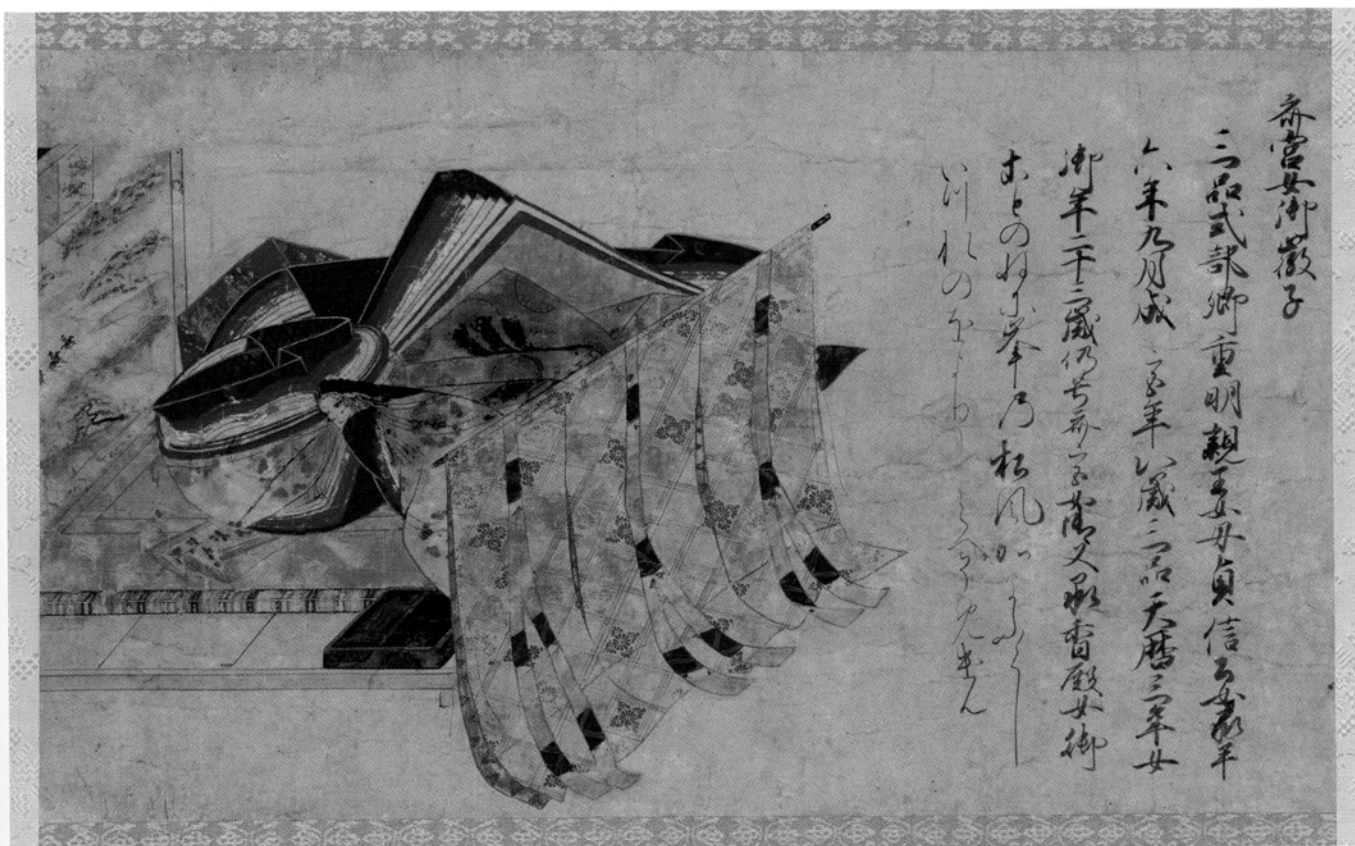 斎宮女御徽子
三品式部卿重明親王女母貞信公女承平
六年九月 年八歳三品天暦三年女
御年二十三歳仍号斎宮女御又承香殿女御
ことのねに峯乃松風かよふらし
いつれのをより しらへそめけん